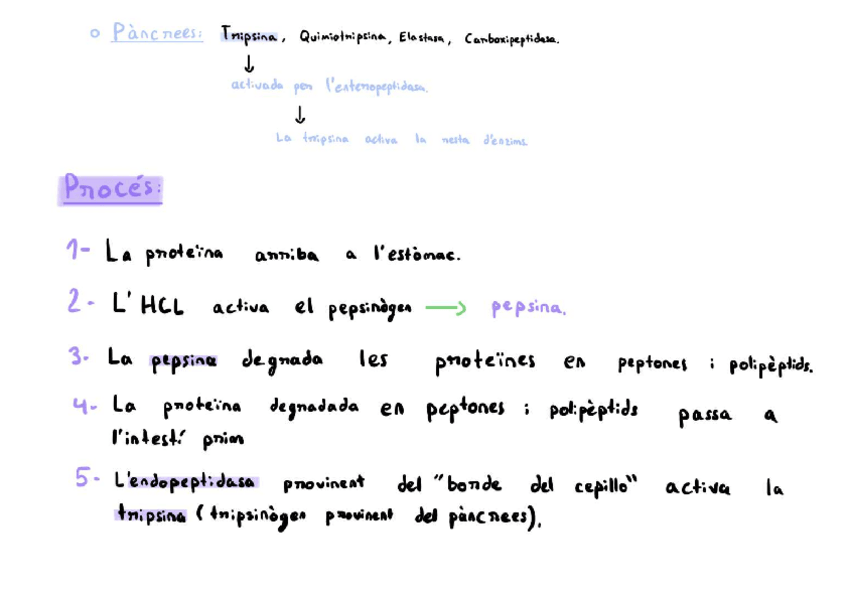 ○ Pàncrees: Tripsina, Quimiotripsina, Elastasa, Carboxipeptidasa.
↓
activada per l'enteropeptidasa.
↓
La tripsina activa la resta d'enzims
Procés:
1- La proteïna arriba a l'estòmac.
2- L'HCL activa el pepsinògen → pepsina.
3- La pepsina degrada les proteïnes en peptones i polipèptids.
4- La proteïna degradada en peptones i polipèptids passa a
l'intestí prim
5- L'endopeptidasa provinent del "borde del cepillo" activa la
tripsina (tripsinògen provinent del pàncrees).